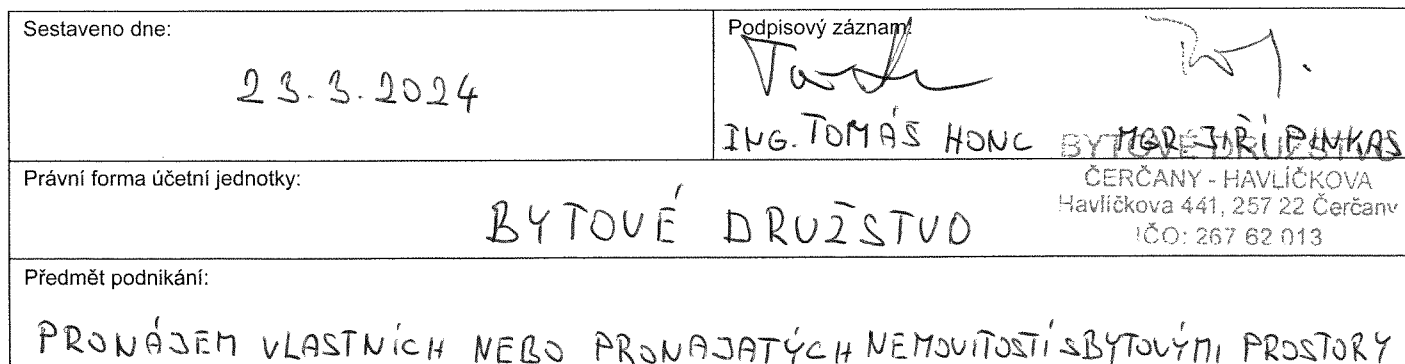 Sestaveno dne:
23.3.2024
Podpisový záznam:
ING. TOMÁŠ HONC MGR. JIŘÍ PINKAS
BYTOVÉ DRUŽSTVO
ČERČANY - HAVLÍČKOVA
Havlíčkova 441, 257 22 Čerčany
IČO: 267 62 013
Právní forma účetní jednotky:
BYTOVÉ DRUŽSTVO
Předmět podnikání:
PRONÁJEM VLASTNÍCH NEBO PRONAJATÝCH NEMOVITOSTÍ S BYTOVÝMI PROSTORY